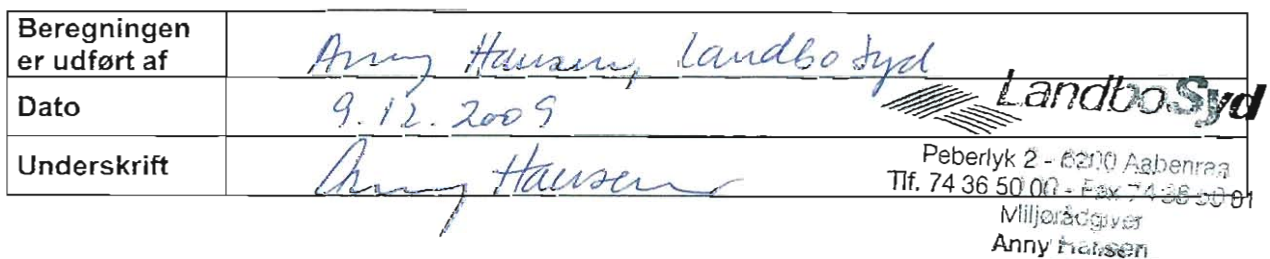 Beregningen
er udført af
Anny Hansen, LandboSyd
Dato
9.12.2009
LandboSyd
Underskrift
Anny Hansen
Peberlyk 2 - 6200 Aabenraa
Tlf. 74 36 50 00 - Fax 74 36 50 01
Miljørådgiver
Anny Hansen